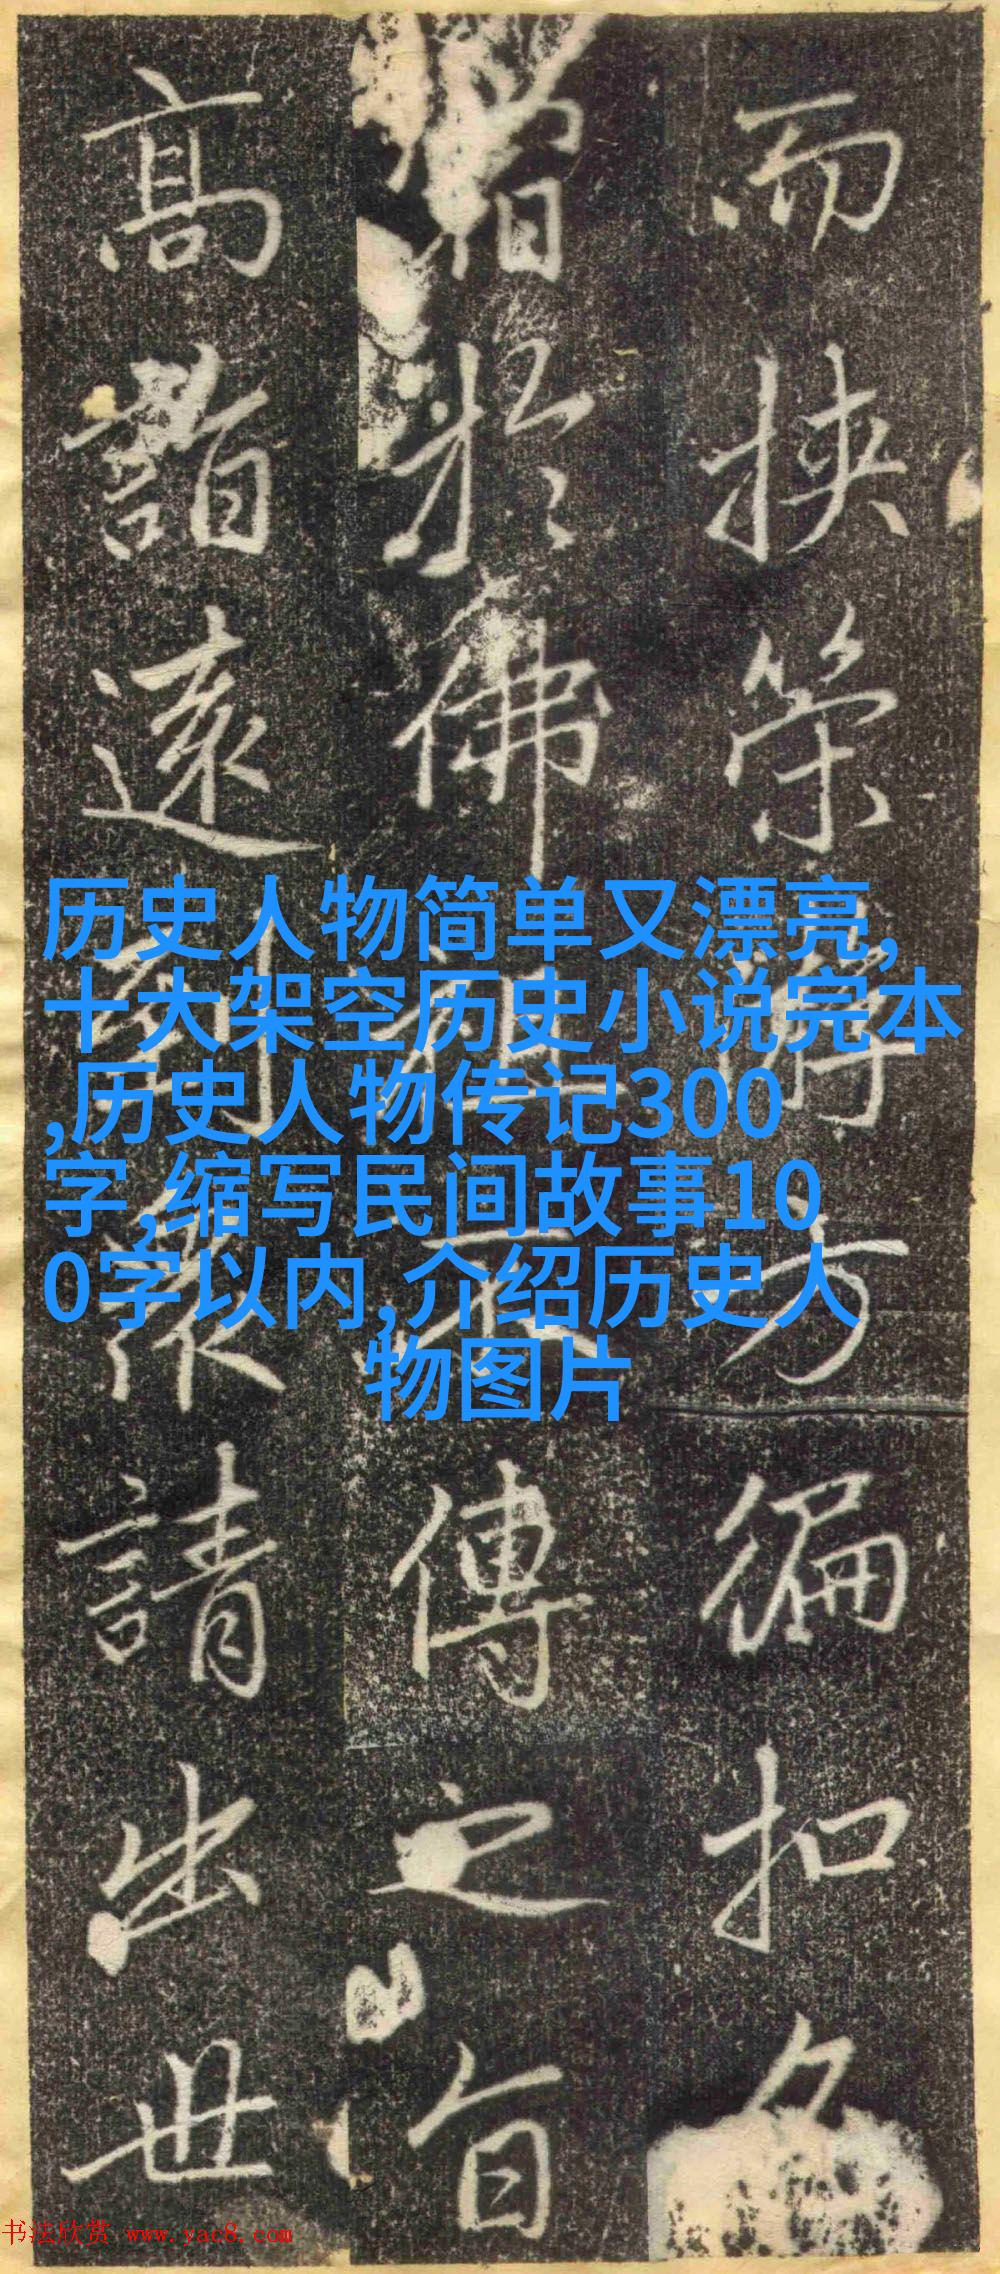 而挾策方徧扣
於佛祖不傳之旨
高遠到懷請出世
历史人物简单又漂亮,
十大架空历史小说完本
,历史人物传记300
字,缩写民间故事10
0字以内,介绍历史人
物图片
书法欣赏 www.yac8.com